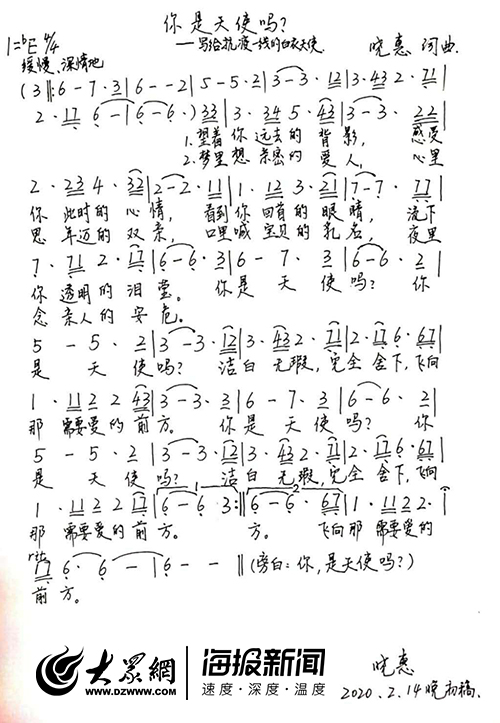 你是天使吗?
1=♭E 4/4 ——写给抗疫一线的白衣天使. 晓惠 词曲.
缓慢、深情地
(3‖:6-7·3|6--2|5-5·2|3-3·12|3·432·71|
2·176-|6-6·)33|3·345·43|3-3·22|
1.望着你远去的背影, 感受
2.梦里想亲密的爱人, 心里
2·234·32|2-2·11|1·123·21|7-7·77|
你此时的心情, 看到你回首的眼睛, 流下
思年迈的双亲, 口里喊宝贝的乳名, 夜里
7·712·17|6-6·3|6-7·3|6-6·2|
你透明的泪莹。 你是天使吗? 你
念亲人的安危。
5-5·2|3-3·12|3·432·71|2·176·67|
是天使吗? 洁白无瑕,完全舍下,飞向
1·112243|3-3·3|6-7·3|6-6·2|
那需要爱的前方。 你是天使吗? 你
5-5·2|3-3·12|3·432·71|2·176·67|
是天使吗? 洁白无瑕,完全舍下,飞向
1·112217|6-63:‖6-6·67|1·1122·|
那需要爱的前方。 方。 飞向那需要爱的
rit.
176·6-|6--‖(旁白:你,是天使吗?)
前方。
大众网 海报新闻
WWW.DZWWW.COM 速度·深度·温度
晓惠
2020.2.14晚初稿.